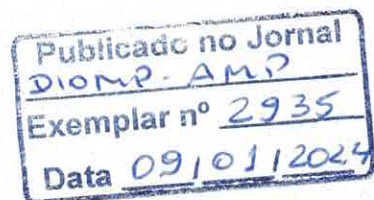 Publicado no Jornal
DIOMP - AMP
Exemplar nº 2935
Data 09/01/2024